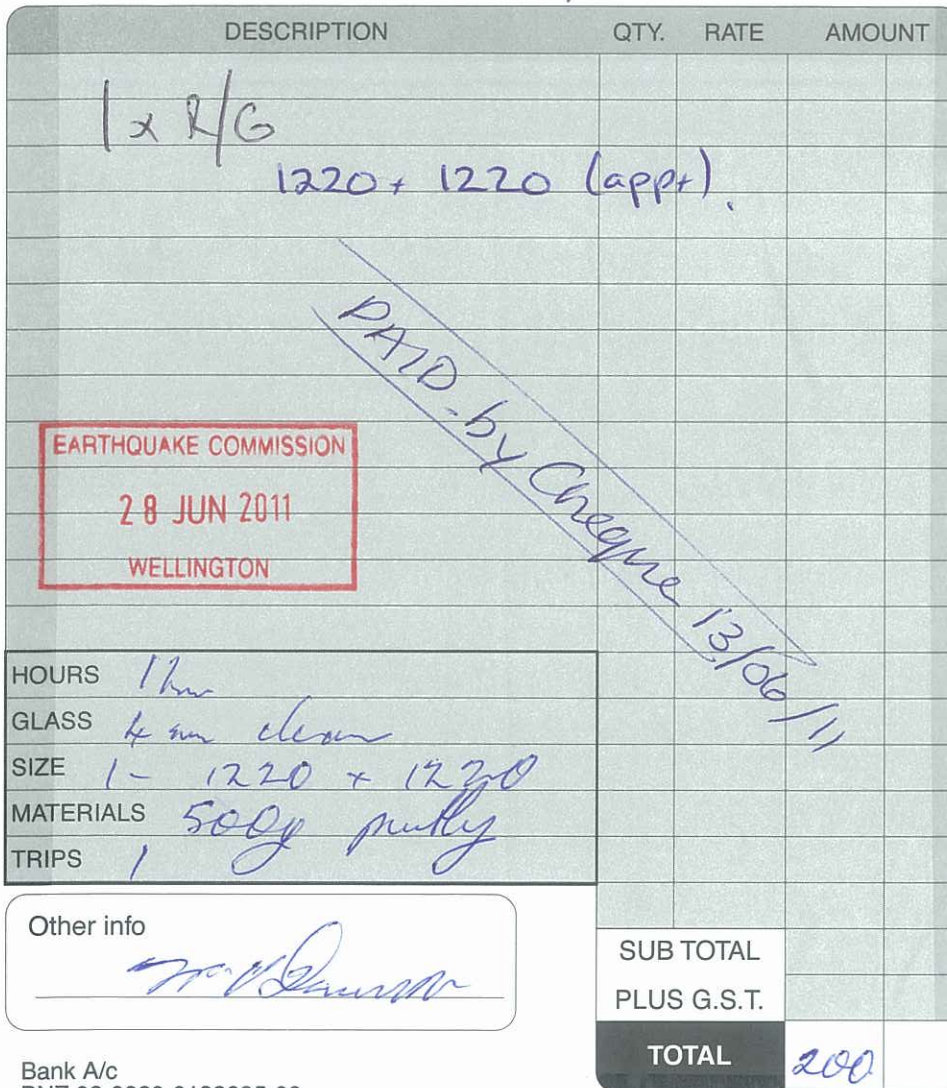 DESCRIPTION QTY. RATE AMOUNT
1 x R/G
1220 + 1220 (app+).
PAID - by Cheque 13/06/11
EARTHQUAKE COMMISSION
28 JUN 2011
WELLINGTON
HOURS 1 hr
GLASS 4 mm clear
SIZE 1 - 1220 + 1220
MATERIALS 500g putty
TRIPS 1
Other info
SUB TOTAL
PLUS G.S.T.
TOTAL 200
Bank A/c